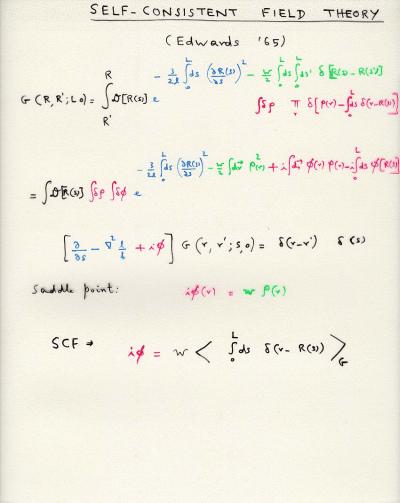 SELF-CONSISTENT FIELD THEORY
(Edwards '65)
G(R,R';L,0) = ∫_{R'}^{R} 𝒟[R(s)] e^{- 3/2ℓ ∫_0^L ds (∂R(s)/∂s)² - w/2 ∫_0^L ds ∫_0^L ds' δ[R(s)-R(s')]}
∫δρ Π_r δ[ρ(r)-∫_0^L ds δ(r-R(s))]
= ∫𝒟[R(s)] ∫δρ ∫δφ e^{- 3/2ℓ ∫_0^L ds (∂R(s)/∂s)² - w/2 ∫dr⃗ ρ²(r) + i∫dr⃗ φ(r) ρ(r) - i∫_0^L ds φ[R(s)]}
[∂/∂s - ∇² ℓ/6 + iφ] G(r,r';s,0) = δ(r-r') δ(s)
Saddle point: iφ(r) = w ρ(r)
SCF → iφ = w < ∫_0^L ds δ(r-R(s)) >_G